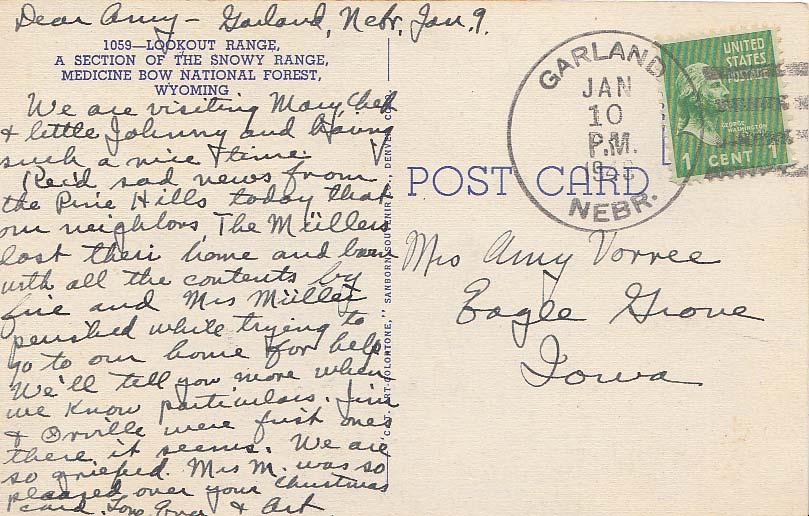 Dear Amy - Garland, Nebr. Jan. 9.
1059—LOOKOUT RANGE,
A SECTION OF THE SNOWY RANGE,
MEDICINE BOW NATIONAL FOREST,
WYOMING
We are visiting Mary, Chet
& little Johnny and having
such a nice time.
Rec'd sad news from
the Pine Hills today that
our neighbors, The Müllers
lost their home and barn
with all the contents by
fire and Mrs Müller
perished while trying to
go to our home for help
We'll tell you more when
we know particulars. Jim
& Orville were first ones
there it seems. We are
so grieved. Mrs M. was so
pleased over your Christmas
card. Love & Art
"C.T. ART-COLORTONE," SANBORN SOUVENIR CO., DENVER, COLO.
GARLAND
JAN
10
P.M.
NEBR.
UNITED
STATES
POSTAGE
GEORGE WASHINGTON
1 CENT 1
POST CARD
Mrs Amy Vorree
Eagle Grove
Iowa